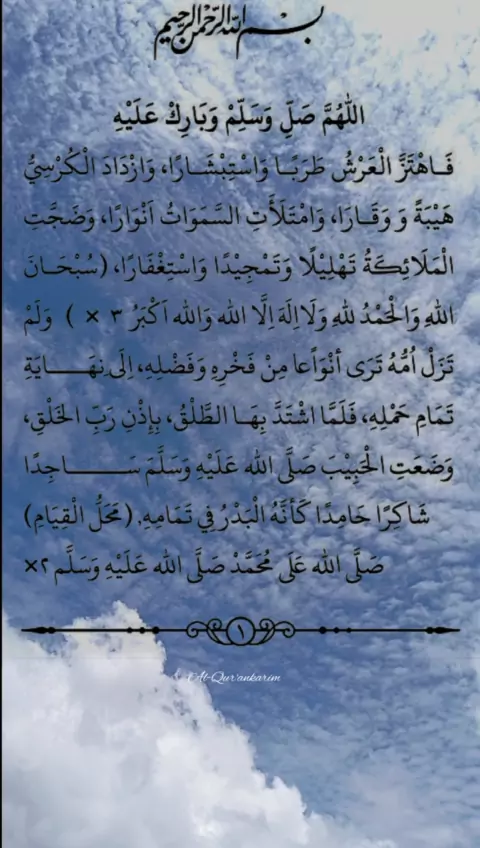 بسم الله الرحمن الرحيم
اللّٰهُمَّ صَلِّ وَسَلِّمْ وَبَارِكْ عَلَيْهِ
فَاهْتَزَّ الْعَرْشُ طَرَبًا وَاسْتِبْشَارًا، وَازْدَادَ الْكُرْسِيُّ
هَيْبَةً وَ وَقَارَا، وَامْتَلَأَتِ السَّمَوَاتُ اَنْوَارًا، وَضَجَّتِ
الْمَلَائِكَةُ تَهْلِيْلًا وَتَمْجِيْدًا وَاسْتِغْفَارًا، (سُبْحَانَ
اللهِ وَالْحَمْدُ لِلهِ وَلَا اِلَهَ اِلَّا الله وَالله اَكْبَرُ ٣ × ) وَلَمْ
تَزَلْ اُمُّهُ تَرَى اَنْوَاعًا مِنْ فَخْرِهِ وَفَضْلِهِ، اِلَى نِهَايَةِ
تَمَامِ حَمْلِهِ، فَلَمَّا اشْتَدَّ بِهَا الطَّلْقُ، بِاِذْنِ رَبِّ الْخَلْقِ،
وَضَعَتِ الْحَبِيْبَ صَلَّى الله عَلَيْهِ وَسَلَّمَ سَاجِدًا
شَاكِرًا حَامِدًا كَأَنَّهُ الْبَدْرُ فِي تَمَامِهِ. (مَحَلُّ الْقِيَامِ)
صَلَّى الله عَلَى مُحَمَّدْ صَلَّى الله عَلَيْهِ وَسَلَّم ٢×
١
Al-Qur'ankarim